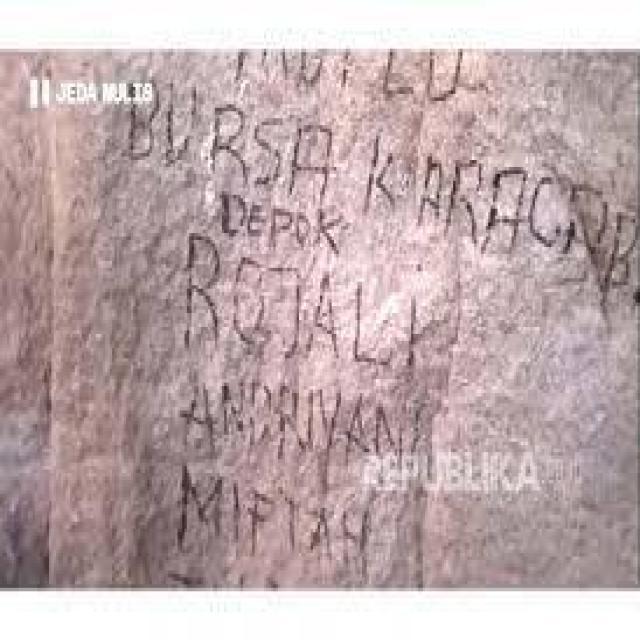 JEDA NULIS
BURSA KARACAB
DEPOK
ROJALI
ANDRIYANI
MIFTAH
REPUBLIKA